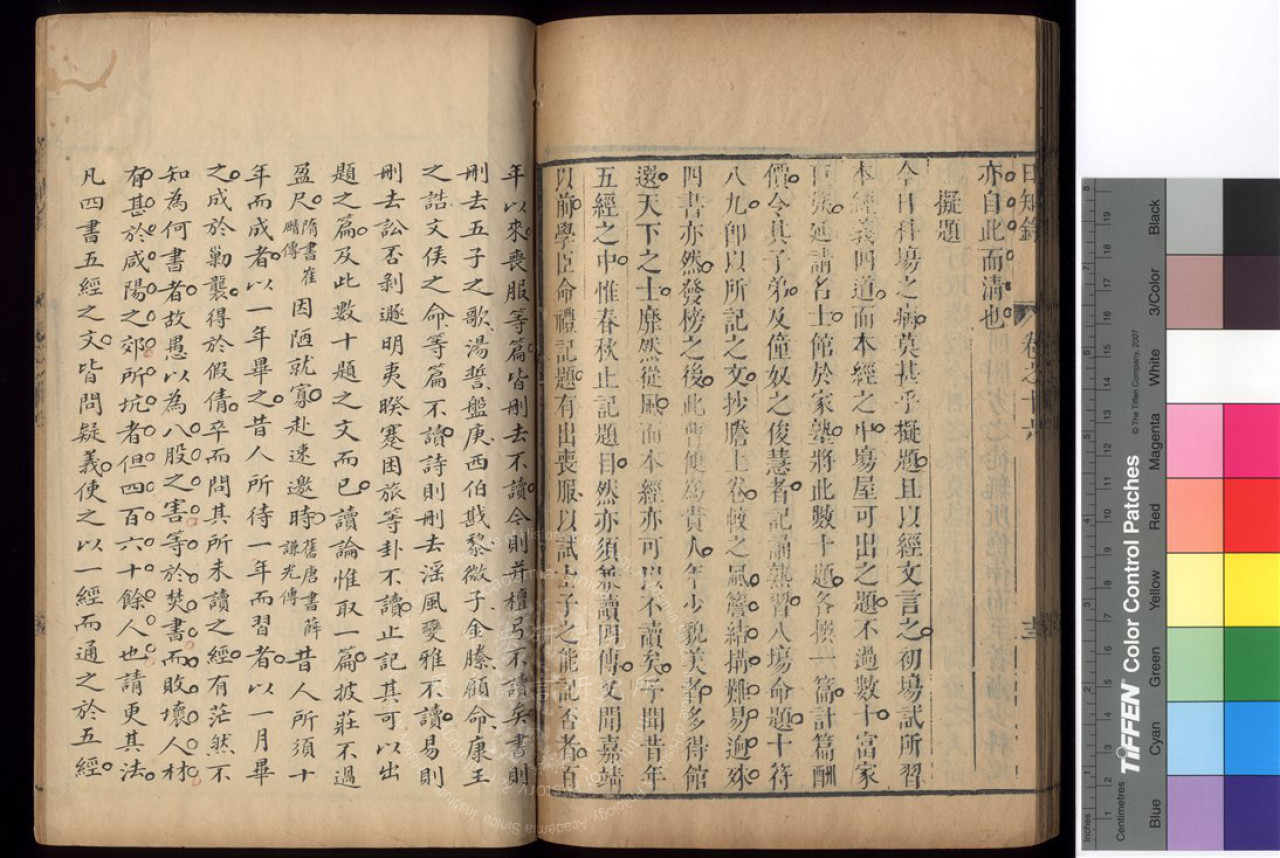 日知錄 卷之十六 十三
亦自此而清也
擬題
今日科場之病莫甚乎擬題且以經文言之初場試所習
本經義四道而本經之中場屋可出之題不過數十富家
巨族延請名士館於家塾將此數十題各撰一篇計篇酬
價令其子弟及僮奴之俊慧者記誦熟習入場命題十符
八九即以所記之文抄謄上卷較之風簷結搆難易迥殊
四書亦然發榜之後此曹便為貴人年少貌美者多得館
選天下之士靡然從風而本經亦可以不讀矣予聞昔年
五經之中惟春秋止記題目然亦須兼讀四傳又聞嘉靖
以前學臣命禮記題有出喪服以試士子之能記否者百
年以來喪服等篇皆刪去不讀今則并檀弓不讀矣書則
刪去五子之歌湯誓盤庚西伯戡黎微子金縢顧命康王
之誥文侯之命等篇不讀詩則刪去淫風變雅不讀易則
刪去訟否剝遯明夷睽蹇困旅等卦不讀止記其可以出
題之篇及此數十題之文而已讀論惟取一篇披莊不過
盈尺隋書崔賾傳因陋就寡赴速邀時舊唐書薛謙光傳昔人所須十
年而成者以一年畢之昔人所待一年而習者以一月畢
之成於勦襲得於假倩卒而問其所未讀之經有茫然不
知為何書者故愚以為八股之害等於焚書而敗壞人材
有甚於咸陽之郊所坑者但四百六十餘人也請更其法
凡四書五經之文皆問疑義使之以一經而通之於五經
Centimetres
Inches
TIFFEN Color Control Patches
© The Tiffen Company, 2007
Blue
Cyan
Green
Yellow
Red
Magenta
White
3/Color
Black